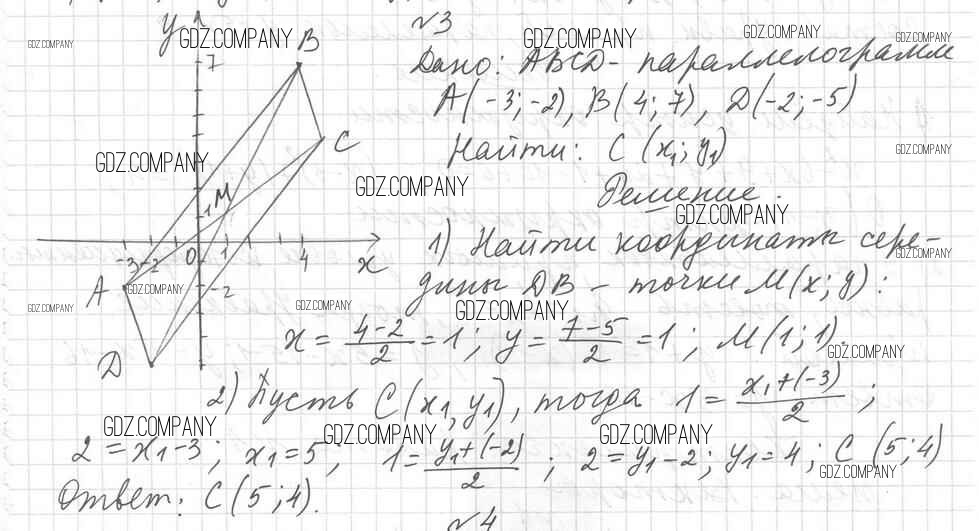 №3
Дано: ABCD - параллелограмм
A(-3;-2), B(4;7), D(-2;-5)
Найти: C (x₁; y₁)
Решение.
1) Найти координаты сере-
дины DB - точки M(x; y):
x = (4-2)/2 = 1; y = (7-5)/2 = 1; M(1;1).
2) Пусть C(x₁, y₁), тогда 1 = (x₁+(-3))/2;
2 = x₁-3; x₁=5; 1 = (y₁+(-2))/2; 2 = y₁-2; y₁=4; C (5;4)
Ответ: C(5;4).
№4
y
B
7
C
M
1
-3
-2
0
1
4
x
A
-2
D
GDZ.COMPANY
GDZ.COMPANY
GDZ.COMPANY
GDZ.COMPANY
GDZ.COMPANY
GDZ.COMPANY
GDZ.COMPANY
GDZ.COMPANY
GDZ.COMPANY
GDZ.COMPANY
GDZ.COMPANY
GDZ.COMPANY
GDZ.COMPANY
GDZ.COMPANY
GDZ.COMPANY
GDZ.COMPANY
GDZ.COMPANY
GDZ.COMPANY
GDZ.COMPANY
GDZ.COMPANY